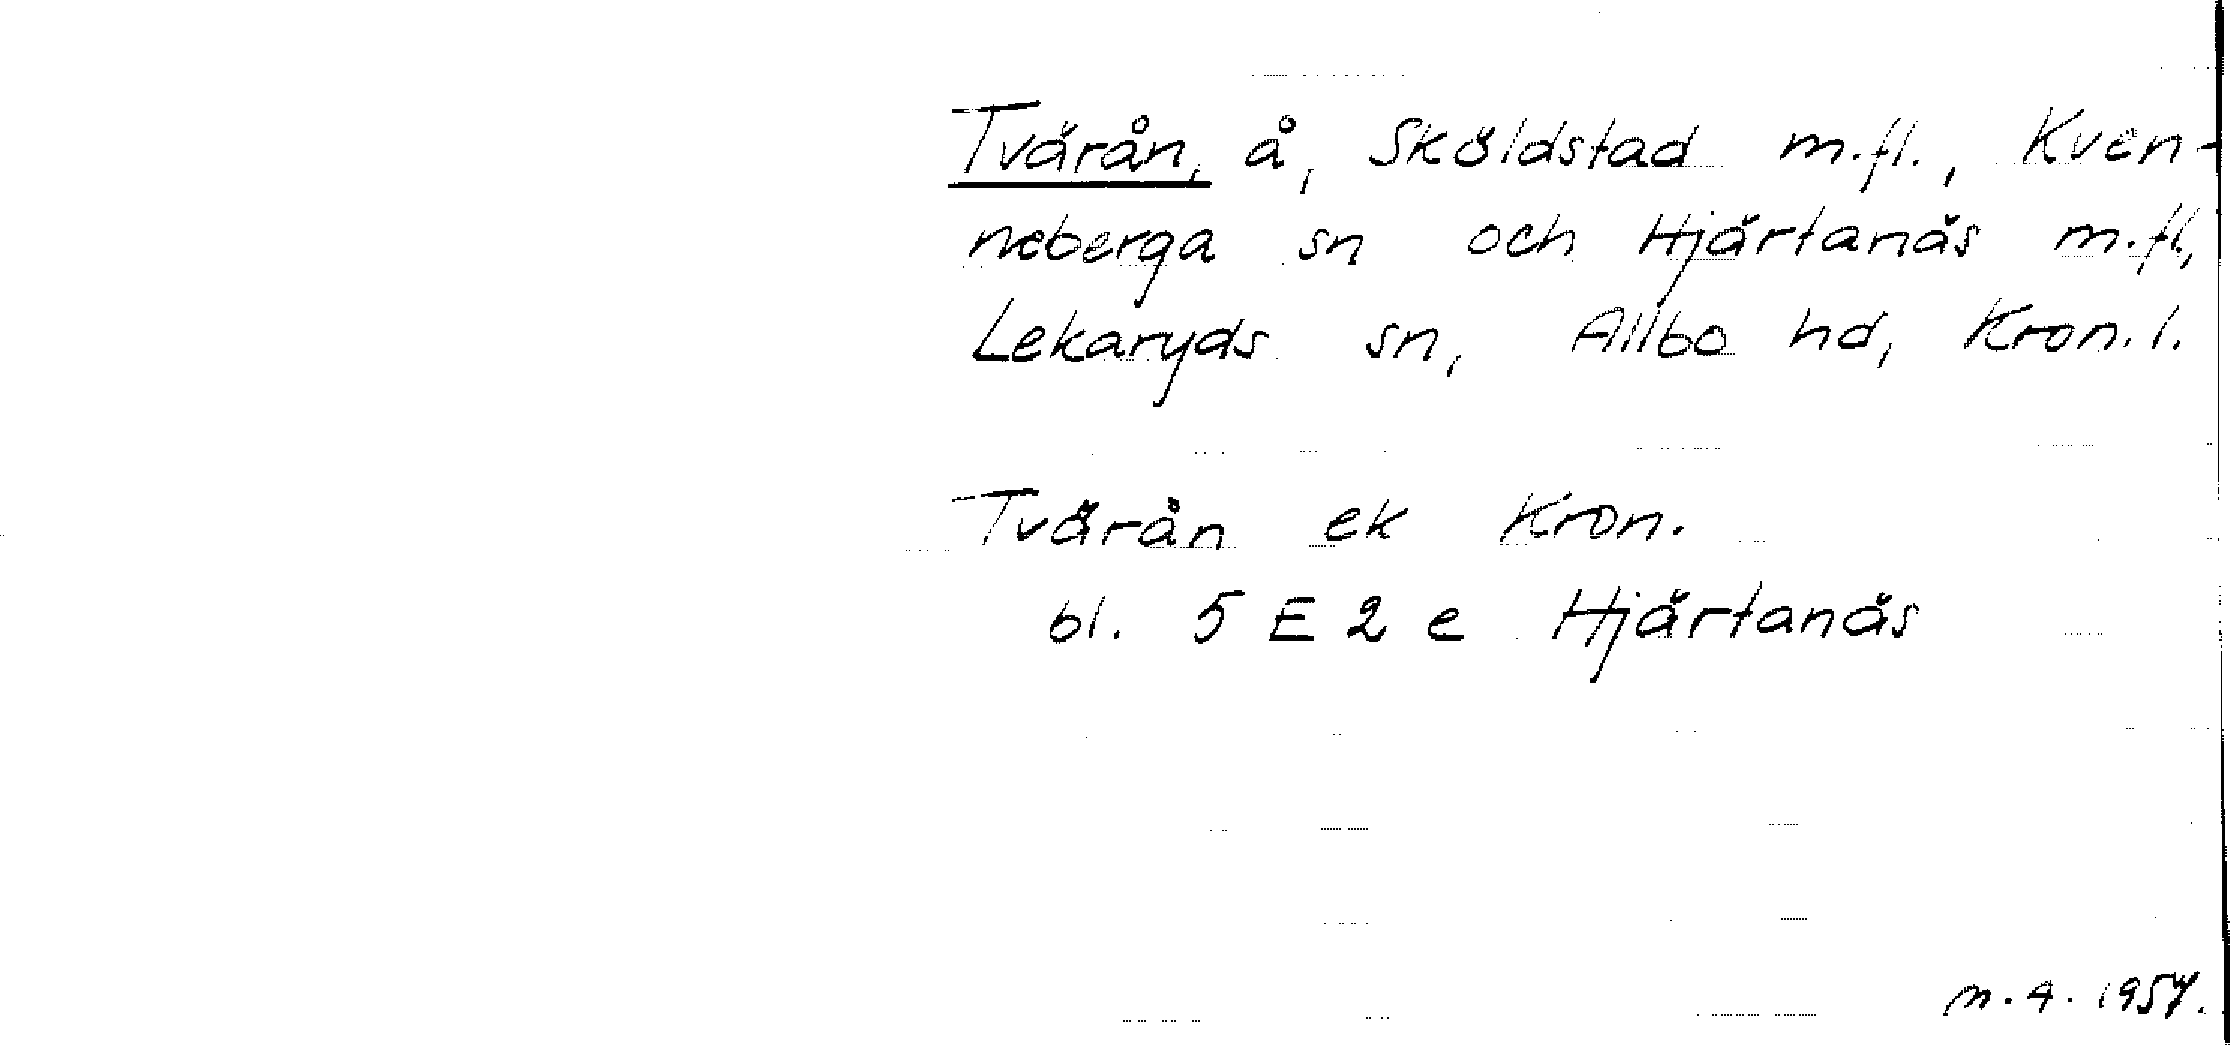 Tvärån, å, Sköldstad m.fl., Kven-
neberga sn och Hjärtanäs m.fl,
Lekaryds sn, Allbo hd, Kron.l.
Tvärån ek Kron.
bl. 5 E 2 e Hjärtanäs